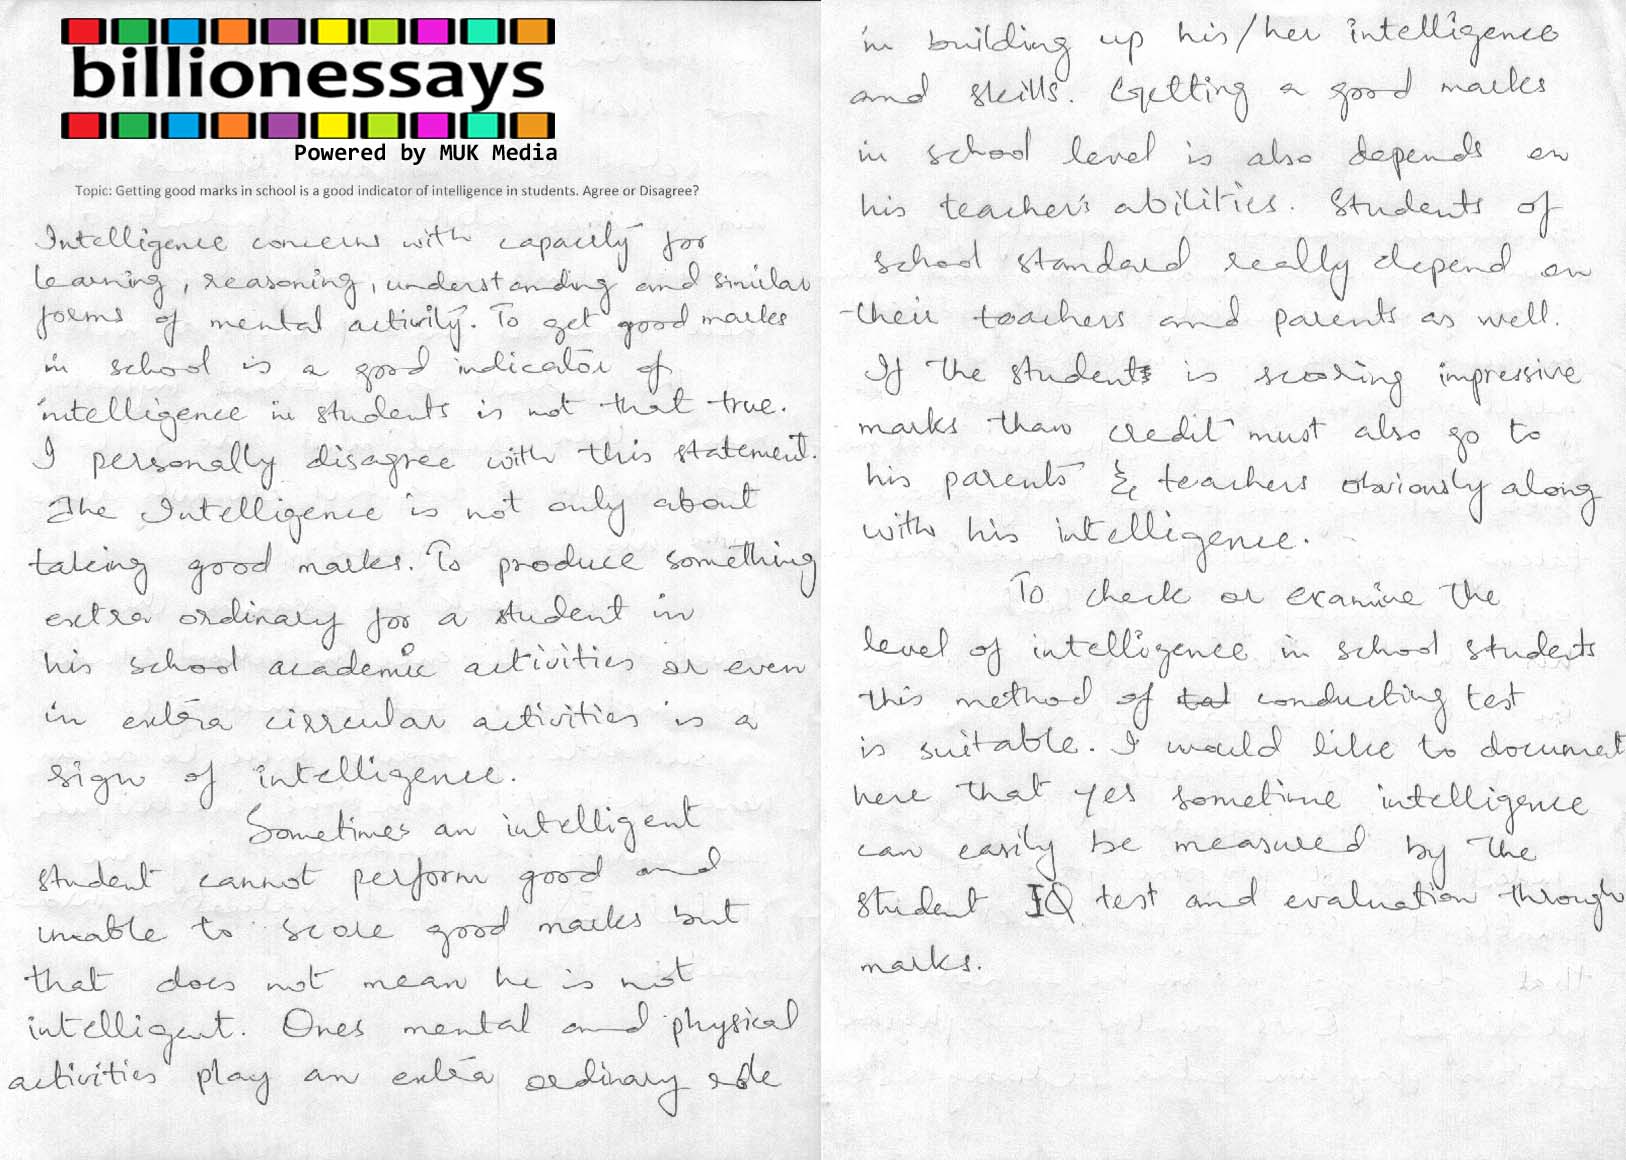 billionessays
Powered by MUK Media
Topic: Getting good marks in school is a good indicator of intelligence in students. Agree or Disagree?
Intelligence concerns with capacity for
learning, reasoning, understanding and similar
forms of mental activity. To get good marks
in school is a good indicator of
intelligence in students is not that true.
I personally disagree with this statement.
The Intelligence is not only about
taking good marks. To produce something
extra ordinary for a student in
his school academic activities or even
in extra cirrcular activities is a
sign of intelligence.
Sometimes an intelligent
student cannot perform good and
unable to score good marks but
that does not mean he is not
intelligent. Ones mental and physical
activities play an extra ordinary role
in building up his/her intelligence
and skills. Getting a good marks
in school level is also depends on
his teacher's abilities. Students of
school standard really depend on
their teachers and parents as well.
If the student is scoring impressive
marks than credit must also go to
his parents & teachers obviously along
with his intelligence.
To check or examine the
level of intelligence in school students
this method of conducting test
is suitable. I would like to documet
here that yes sometime intelligence
can easily be measured by the
student IQ test and evaluation through
marks.